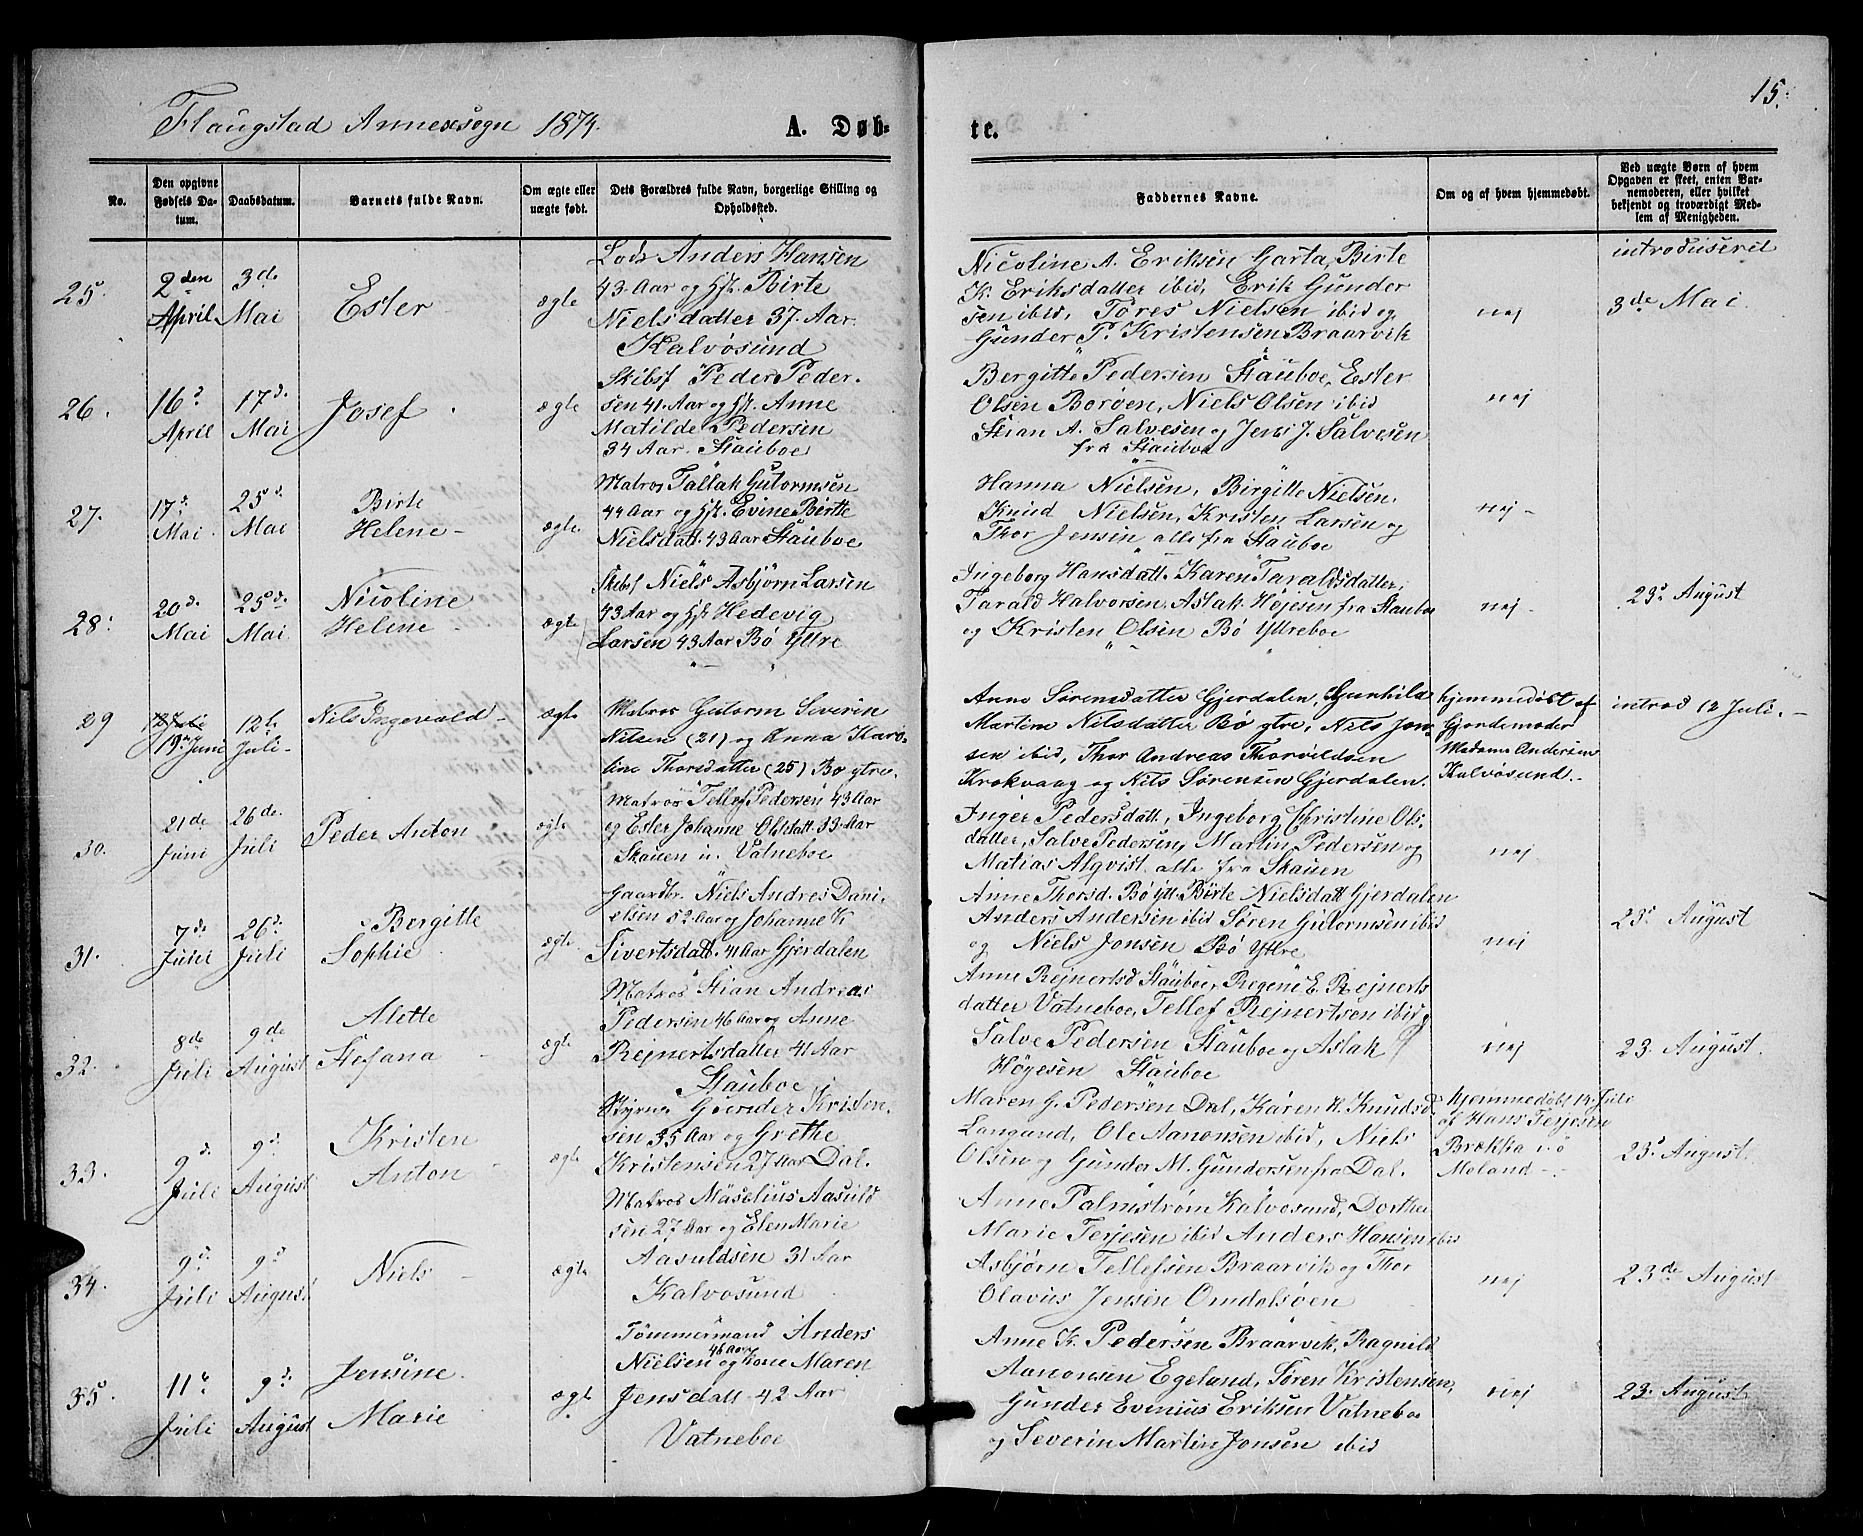 Flaugstad Annexsogn 1874.
A. Døb-
te.
15.
No.
Den opgivne
Fødsels Da-
tum.
Daabsdatum.
Barnets fulde Navn.
Om ægte eller
uægte født.
Dets Forældres fulde Navn, borgerlige Stilling og
Opholdssted.
Faddernes Navne.
Om og af hvem hjemmedøbt.
Ved uægte Børn af hvem
Opgaven er skeet, enten Bar-
nemoderen, eller hvilket
bekjendt og troværdigt Med-
lem af Menigheden.
25.
2den
April
3de
Mai
Ester
ægte
Lods Anders Hansen
43 Aar og Hst. Birte
Nielsdatter 37 Aar
Kalvøsund
Nicoline A. Eriksen Garta, Birte
K. Eriksdatter ibid, Erik Gunder
sen ibid, Tores Nielsen ibid og
Gunder P. Kristensen Braarvik
nej
introduseret
3de Mai
26.
16d
April
17d.
Mai
Josef
ægte
Skibsf Peder Peder.
sen 41. Aar og Hst. Anne
Matilde Pedersen
34 Aar. Stauboe
Bergitte Pedersen Stauboe, Ester
Olsen Borøen, Niels Olsen ibid
Stian A. Salvesen og Jens J. Salvesen
fra Stauboe
nej
27.
17d.
Mai
25d.
Mai
Birte
Helene
ægte
Matros Tallak Gutormsen
44 Aar og Hst. Evine Birtte
Nielsdatt. 43 Aar Stauboe
Hanna Nielsen, Birgitte Nielsen,
Knud Nielsen, Kristen Larsen og
Thor Jensen alle fra Stauboe
nej
28.
20d.
Mai
25d.
Mai
Nicoline
Helene
ægte
Skibsf Niels Asbjørn Larsen
43 Aar og Hst Hedevig
Larsen 43 Aar Bø Yttre
Ingeborg Hansdatt. Karen Taraldsdatter,
Tarald Halvorsen, Aslak Højesen fra Stauboe
og Kristen Olsen Bø Yttreboe
nej
23d August
29
19de Juni
12te
Juli
Nils Ingevald
ægte
Matros Gutorm Severin
Nilsen (21) og Anna Karo-
line Thorsdatter (25) Bø ytre.
Anne Sørensdatter Gjerdalen, Gunhild
Martine Nilsdatter Bø ytre, Nils Jon-
sen ibid, Thor Andreas Thorvildsen
Krokvaag og Nils Sørensen Gjerdalen.
hjemmedøbt af
Gjordemoder
Madame Andersen
Kalvøsund.
introd 12 Juli.
30.
21de
Juni
26de
Juli
Peder Anton
ægte
Matros Tellef Pedersen 43 Aar
og Ester Johanne Olsdatt. 33 Aar
Skauen u. Vatneboe
Inger Pedersdatt, Ingeborg Christine Ols
datter, Salve Pedersen, Martin Pedersen og
Matias Alqvist alle fra Skauen
nej
31.
7de
Juni
26d.
Juli
Bergitte
Sophie
ægte
Gaardbr. Niels Andres Dani-
elsen 52 Aar og Johanne K
Sivertsdatt. 41 Aar Gjerdalen
Anne Thorsd. Bø Ytt. Birte Nielsdatt Gjerdalen
Anders Andersen ibid Søren Gutormsen ibid
og Niels Jonsen Bø Yttre
nej
23d August
32.
8de
Juli
9de
August
Alette
Stefana
ægte
Matros Stian Andreas
Pedersen 46 Aar og Anne
Rejnertsdatter 41 Aar
Stauboe
Anne Rejnertsd Stauboe, Regene E. Rejnerts
datter Vatneboe, Tellef Rejnertsen ibid
Salve Pedersen Stauboe og Aslak
Høyesen Stauboe
nej
23. August
33.
9d
Juli
9d
August
Kristen
Anton
ægte
Gunder Kristen.
sen 35 Aar og Grethe
Kristensen 27 Aar Dal.
Maren G. Pedersen Dal, Karen K. Knudsd
Langand, Ole Aanonsen ibid, Niels
Olsen og Gunder M. Gundersen fra Dal.
hjemmedøbt 14 Juli
af Hans Terjesen
Brækka i ø
Moland
23d August
34.
9d.
Juli
9d
August
Niels
ægte
Matros Maselius Aasuld
sen 27 Aar og Elen Marie
Aasuldsen 31 Aar
Kalvøsund
Anne Palmstrøm Kalvøsund, Dorthe
Marie Terjesen ibid Anders Hansen ibid
Asbjørn Tellefsen Braarvik og Thor
Olavus Jensen Omdalsøen
nej
23de August
35.
11te
Juli
9d.
August
Jensine
Marie
ægte
Tømmermand Anders
Nielsen 46 Aar og Kone Maren
Jensdatt 42 Aar
Vatneboe
Anne K. Pedersen Braarvik, Ragnild
Aanonsen Egeland, Søren Kristensen,
Gunder Evinius Eriksen Vatneboe
og Severin Martin Jonsen ibid
nej
23. August